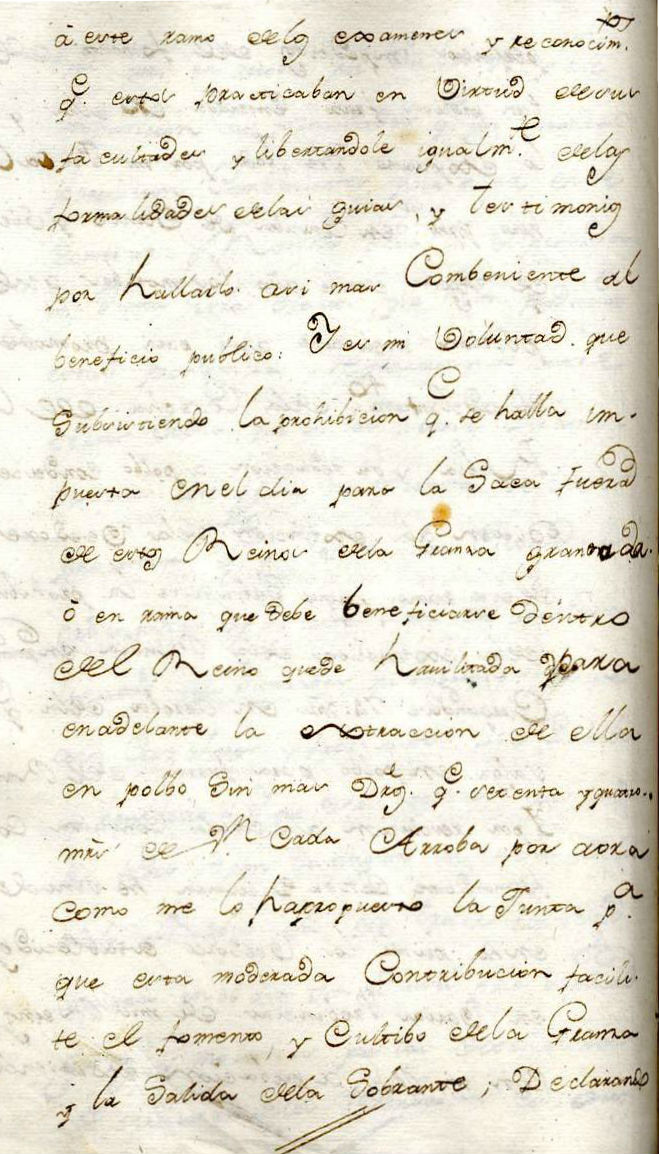 â este ramo delos examenes y reconocim.
q.e estos practicaban en Virtud de sus
facultades y libertandole igualm.te delas
formalidades delas guias, y testimonios
por hallarlo asi mas Combeniente al
beneficio publico: Y es mi Voluntad que
Subsistiendo la prohibicion q.e se halla im-
puesta en el dia para la Saca fuera
de estos Reinos dela Granza granada
ò en rama que debe beneficiarse dentro
del Reino quede havilitada para
en adelante la extraccion de ella
en polbo Sin mas Dros. q.e sesenta y quatro
mrs de Vn Cada Arroba por aora
como me lo ha propuesto la Junta p.a
que esta moderada Contribucion facili-
te el fomento, y Cultibo dela Granza
y la Salida dela Sobrante; Declarando